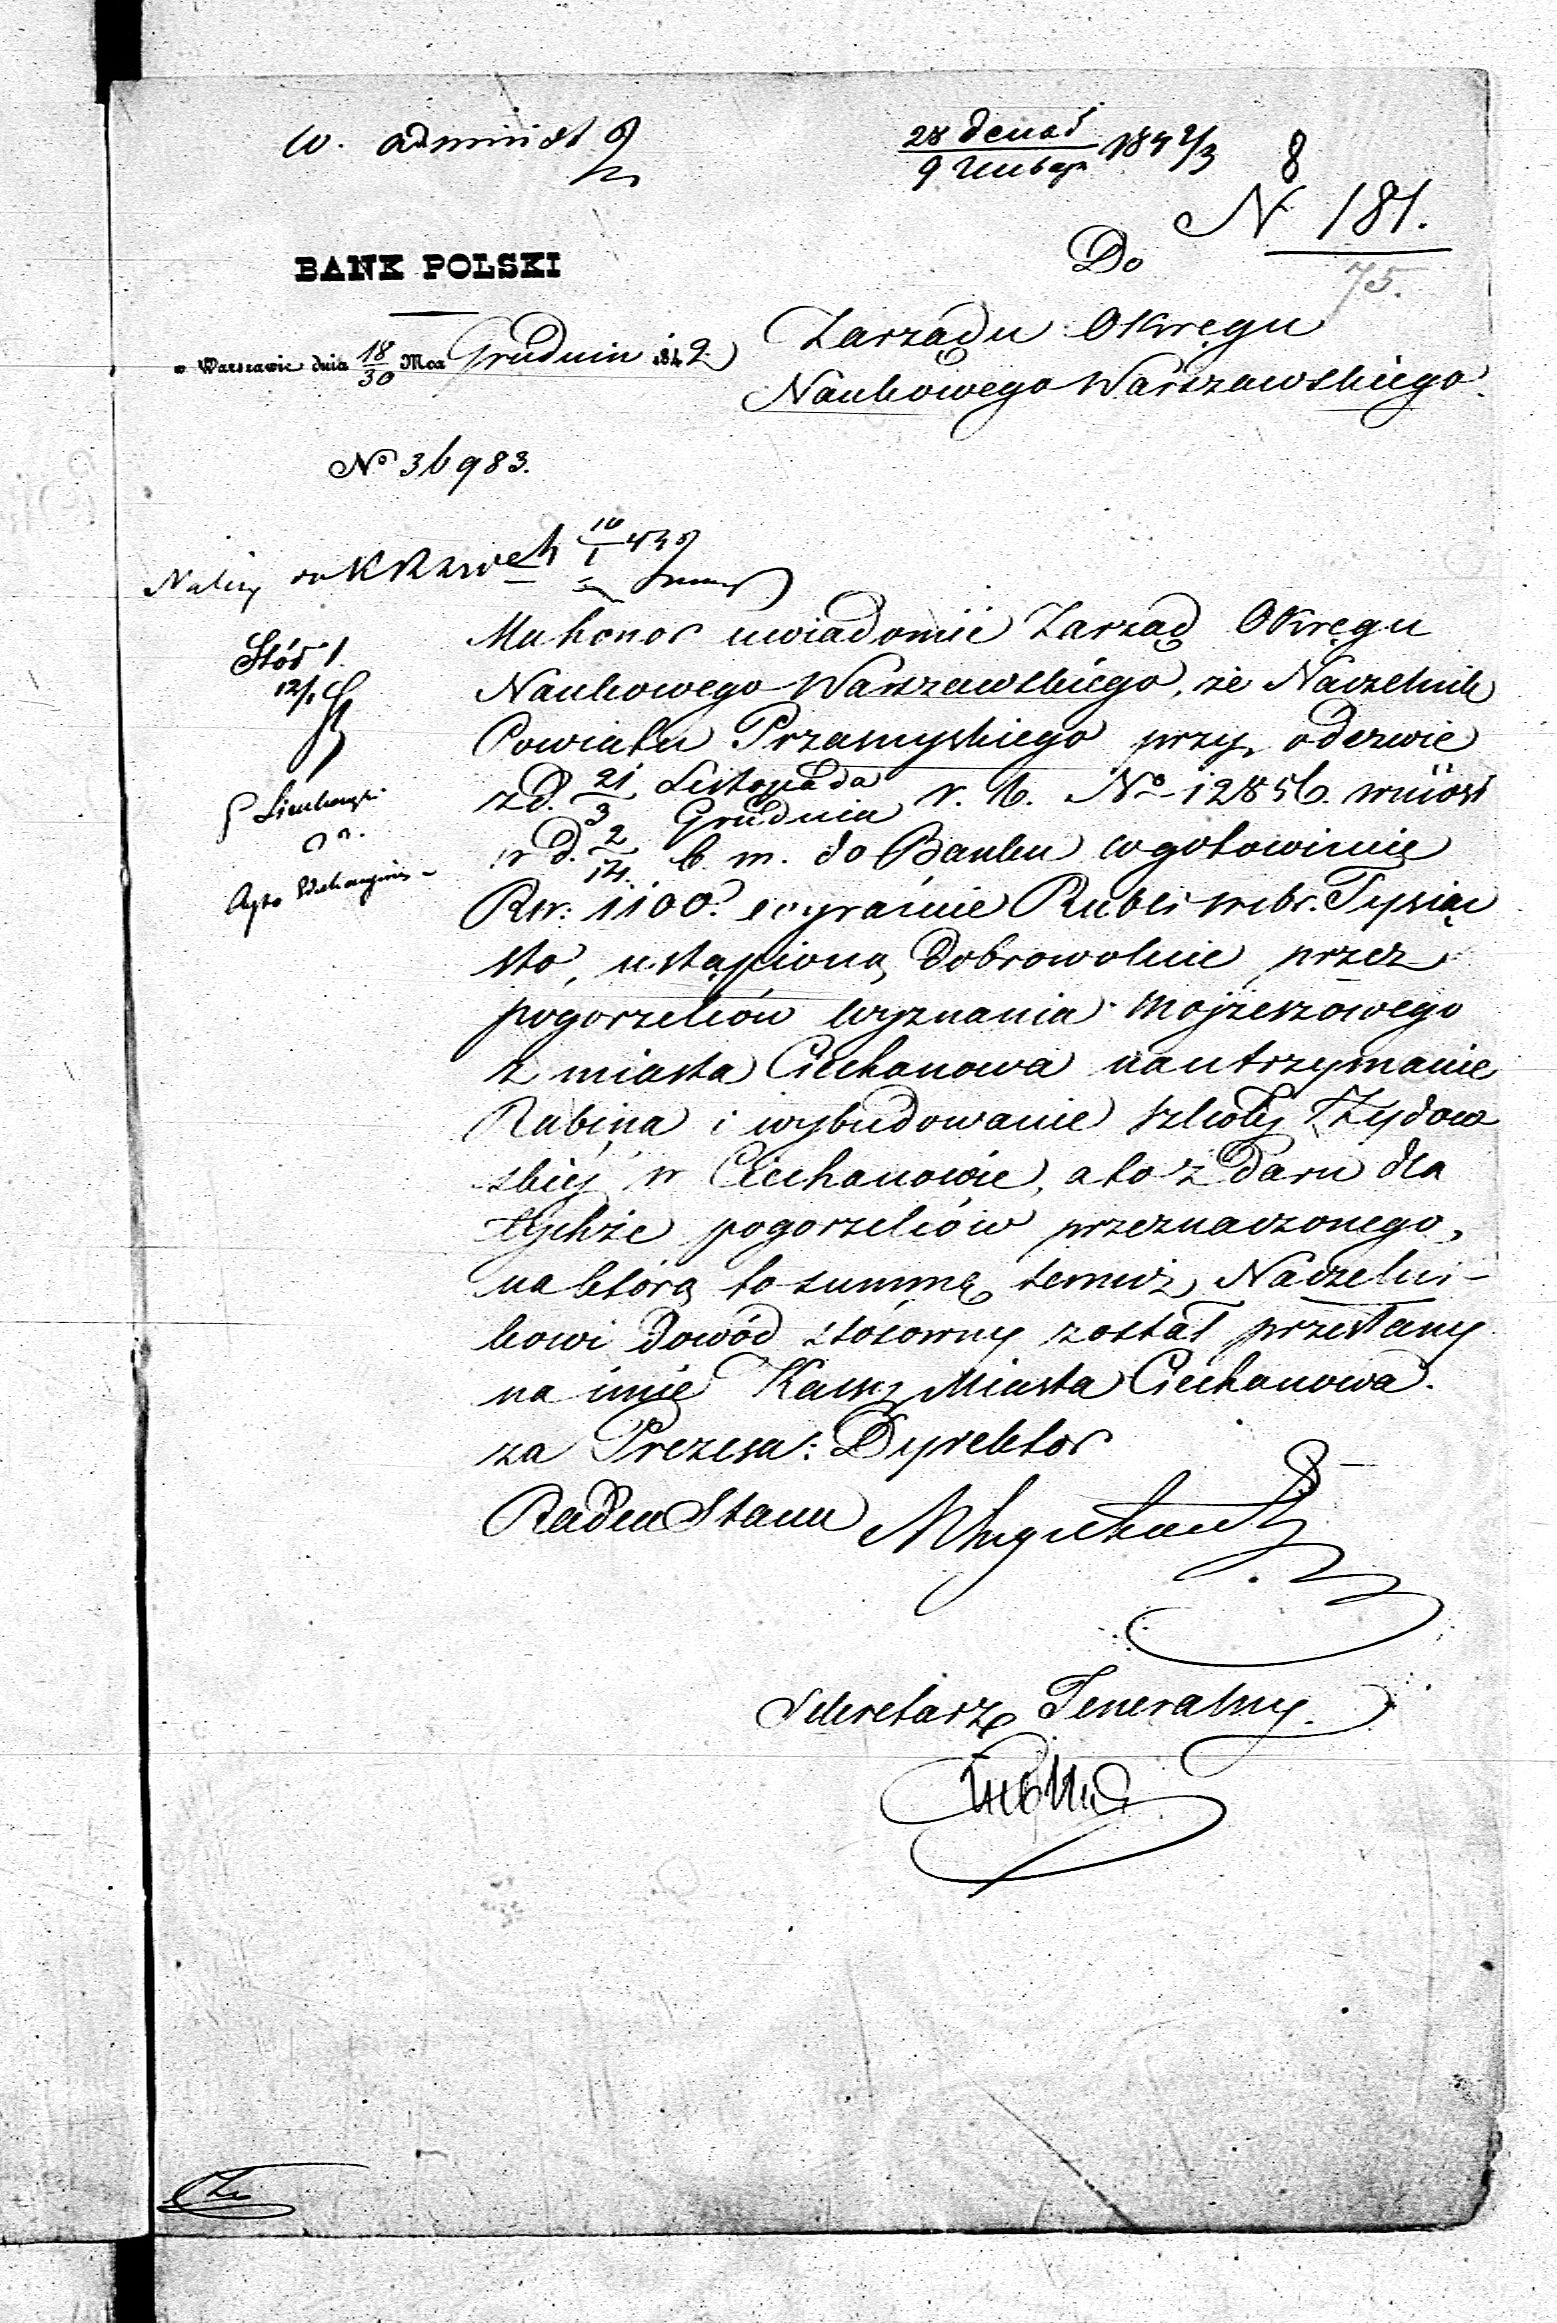 W. Administ
28 Декаб / 9 Январ 184 2/3
8
N 181.
75.
BANK POLSKI
Do
w Warszawie dnia 18/30 Mca Grudnia 1842
Zarządu Okręgu
Naukowego Warszawskiego.
No 36983.
10/1 43
Stół 1.
12/1
Ma honor uwiadomić Zarząd Okręgu
Naukowego Warszawskiego, że Naczelnik
Powiatu Przasnyskiego przy odezwie
z d. 21 Listopada / 3 Grudnia r. b. No 12856. wniósł
w d. 2/14. b. m. do Banku w gotowiznie
Rsr: 1100. wyraźnie Rubli srebr. Tysiąc
sto, ustąpioną dobrowolnie przez
pogorzelców wyznania Mojżeszowego
z miasta Ciechanowa na utrzymanie
Rabina i wybudowanie szkoły Żydow
skiéj w Ciechanowie, a to z daru dla
tychże pogorzelców przeznaczonego,
na którą to summę temuż Naczelni-
kowi dowód stósowny został przesłany
na imie Kassy Miasta Ciechanowa.
za Prezesa: Dyrektor
Radca Stanu
Sekretarz Jeneralny.